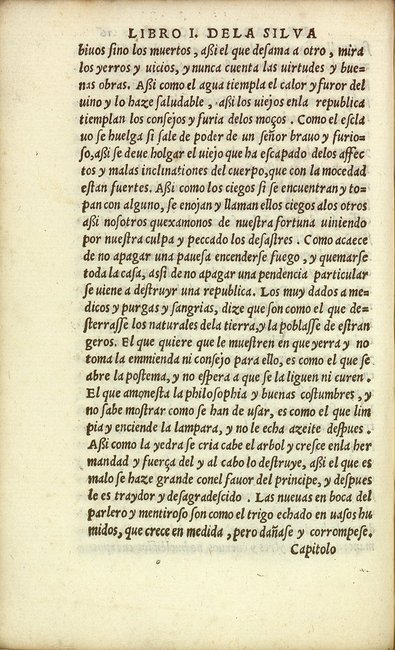 LIBRO I. DELA SILVA
biuos sino los muertos, aßi el que desama a otro, mira
los yerros y vicios, y nunca cuenta las virtudes y bue-
nas obras. Aßi como el agua tiempla el calor y furor del
vino y lo haze saludable, aßi los viejos enla republica
tiemplan los consejos y furia delos moços. Como el escla
uo se huelga si sale de poder de un señor brauo y furio-
so, aßi se deve holgar el viejo que ha escapado delos affec
tos y malas inclinationes del cuerpo, que con la mocedad
estan fuertes. Aßi como los ciegos si se encuentran y to-
pan con alguno, se enojan y llaman ellos ciegos alos otros
aßi nosotros quexamonos de nuestra fortuna viniendo
por nuestra culpa y peccado los desastres. Como acaece
de no apagar una pauesa encenderse fuego, y quemarse
toda la casa, assi de no apagar una pendencia particular
se viene a destruyr una republica. Los muy dados a me-
dicos y purgas y sangrias, dize que son como el que de-
sterrasse los naturales dela tierra, y la poblasse de estran
geros. El que quiere que le muestren en que yerra y no
toma la emmienda ni consejo para ello, es como el que se
abre la postema, y no espera a que se la liguen ni curen.
El que amonesta la philosophia y buenas costumbres, y
no sabe mostrar como se han de usar, es como el que lim
pia y enciende la lampara, y no le echa azeite despues.
Aßi como la yedra se cria cabe el arbol y cresce enla her
mandad y fuerça del y al cabo lo destruye, aßi el que es
malo se haze grande conel fauor del principe, y despues
le es traydor y desagradescido. Las nueuas en boca del
parlero y mentiroso son como el trigo echado en vasos hu
midos, que crece en medida, pero dañase y corrompese.
Capitolo